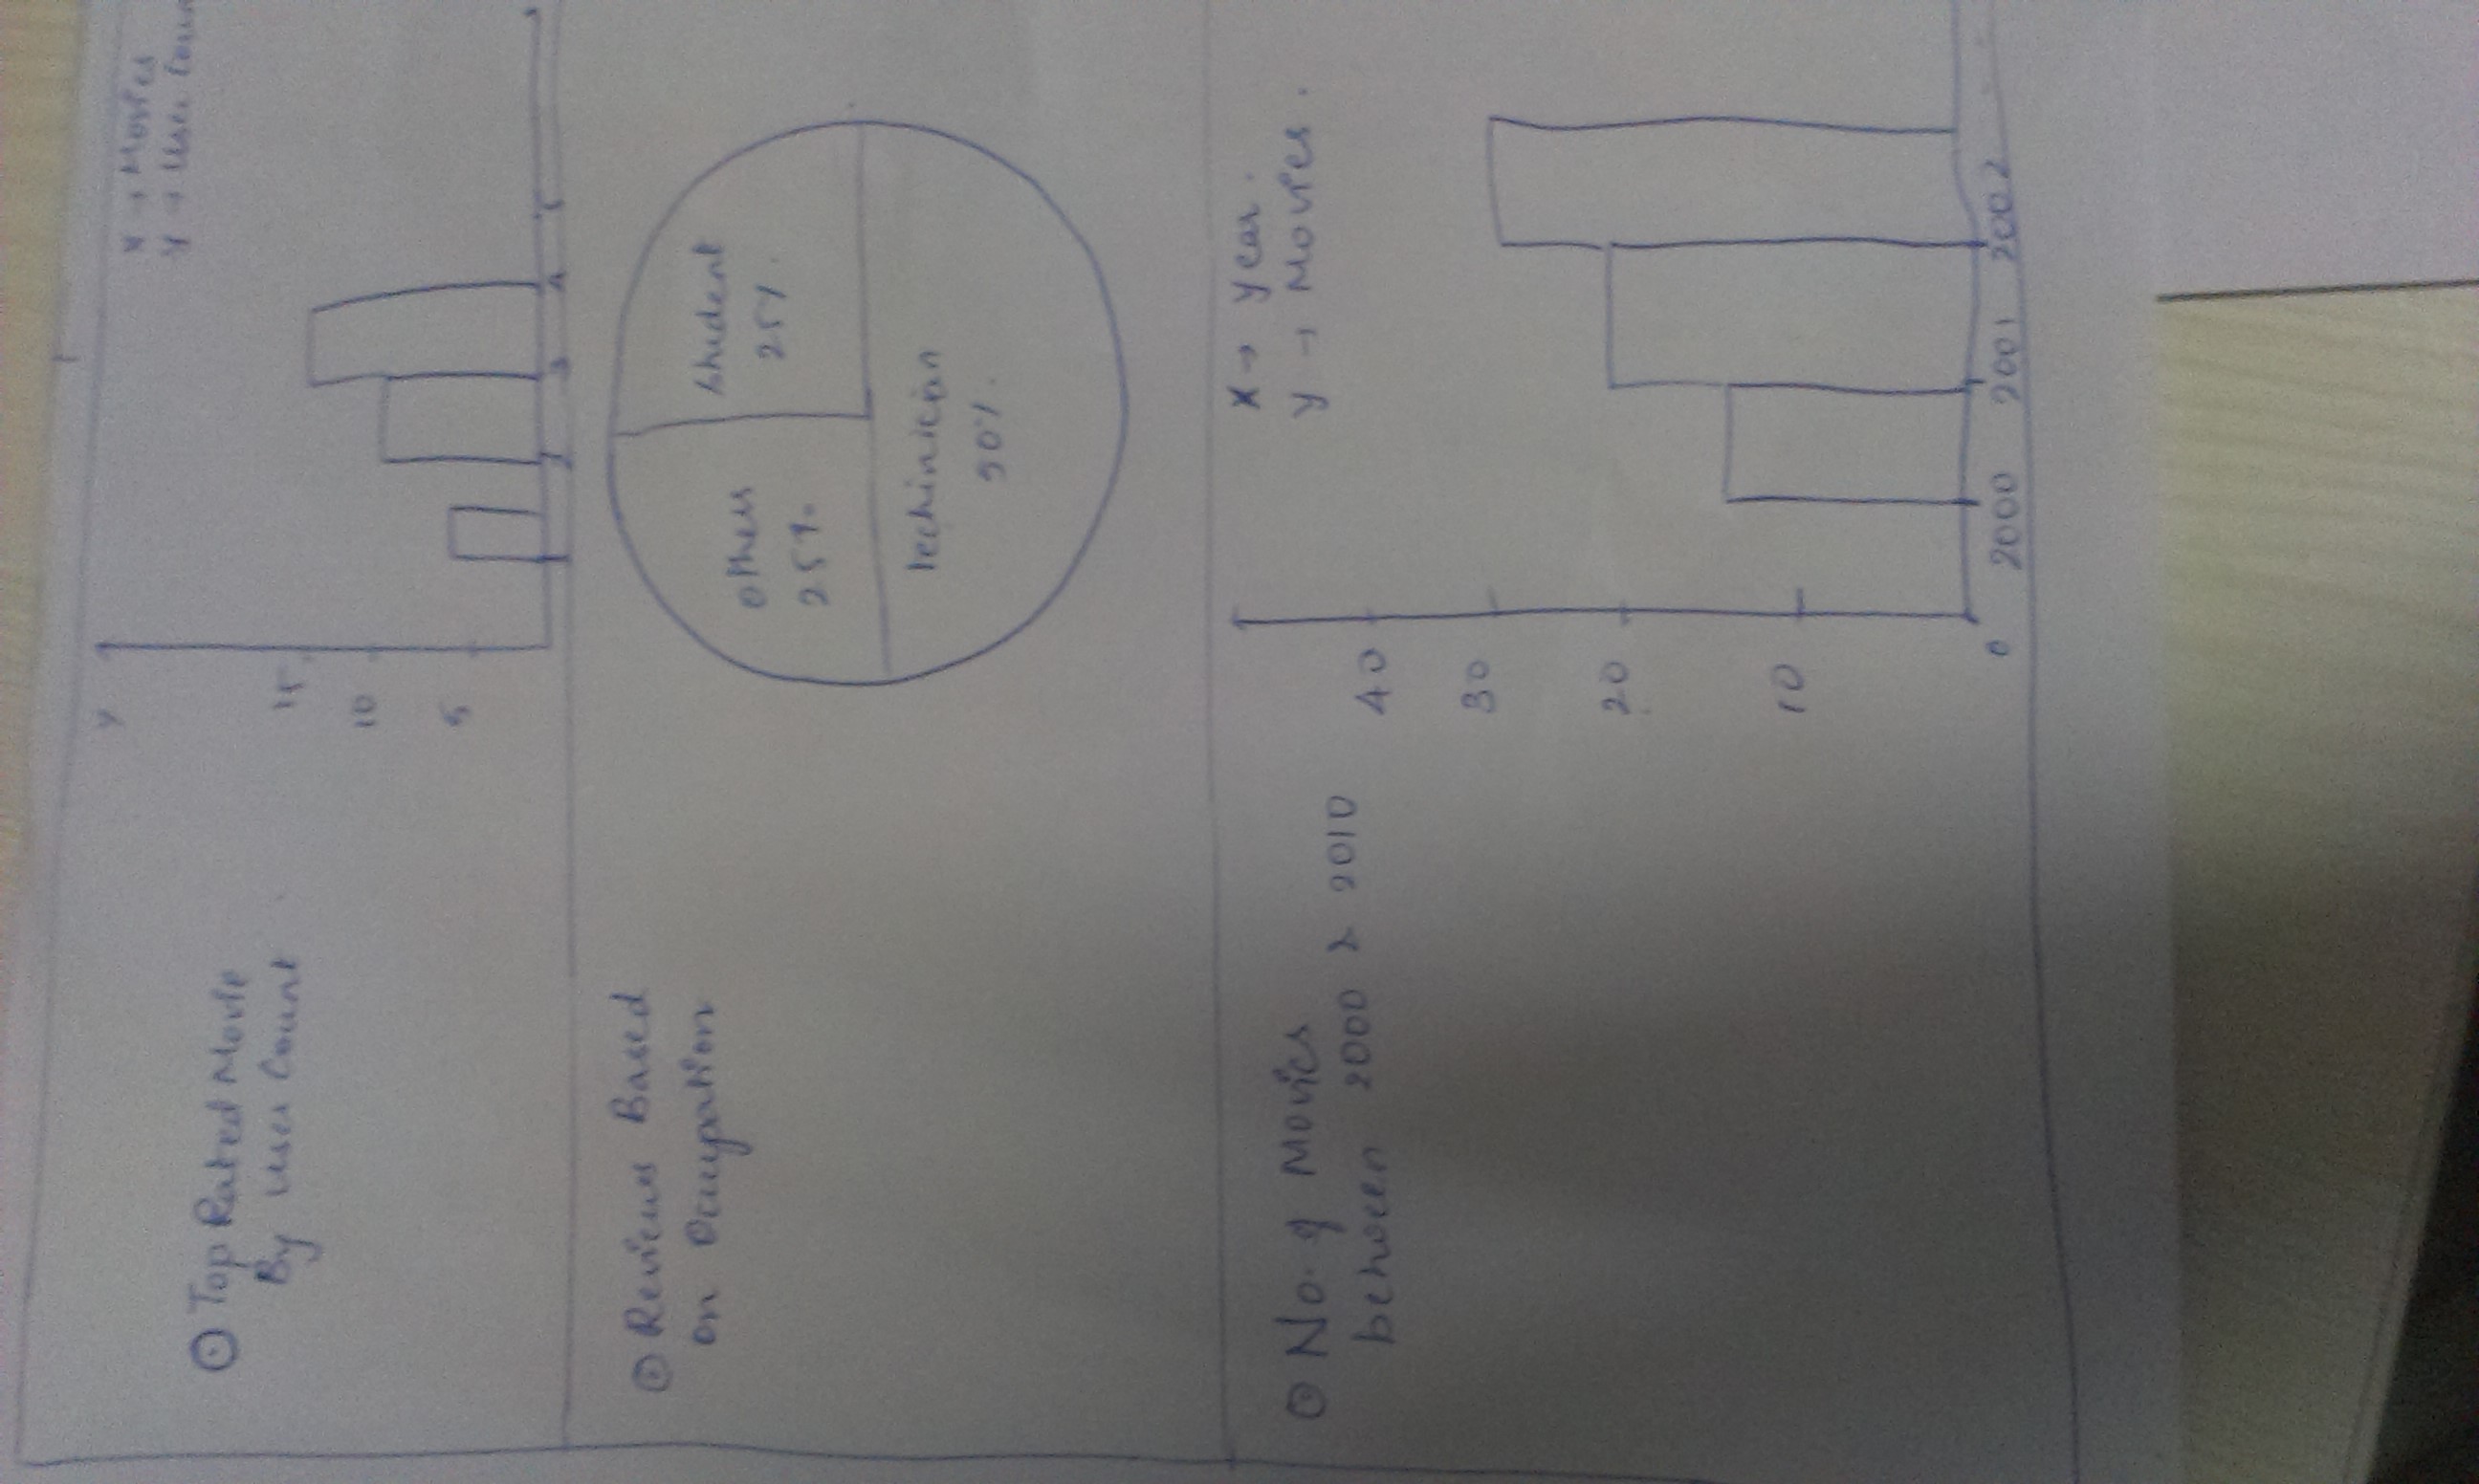 Top Rated Movie
By User Count
x → Movies
y → User Coun
Y
15
10
5
1
2
3
4
5
Reviews Based
on Occupation
Others
25%
Student
25%.
Techinician
50%.
No. of Movies
between 2000 & 2010
x → year.
y → Movies.
40
30
20
10
0
2000 2001 2002